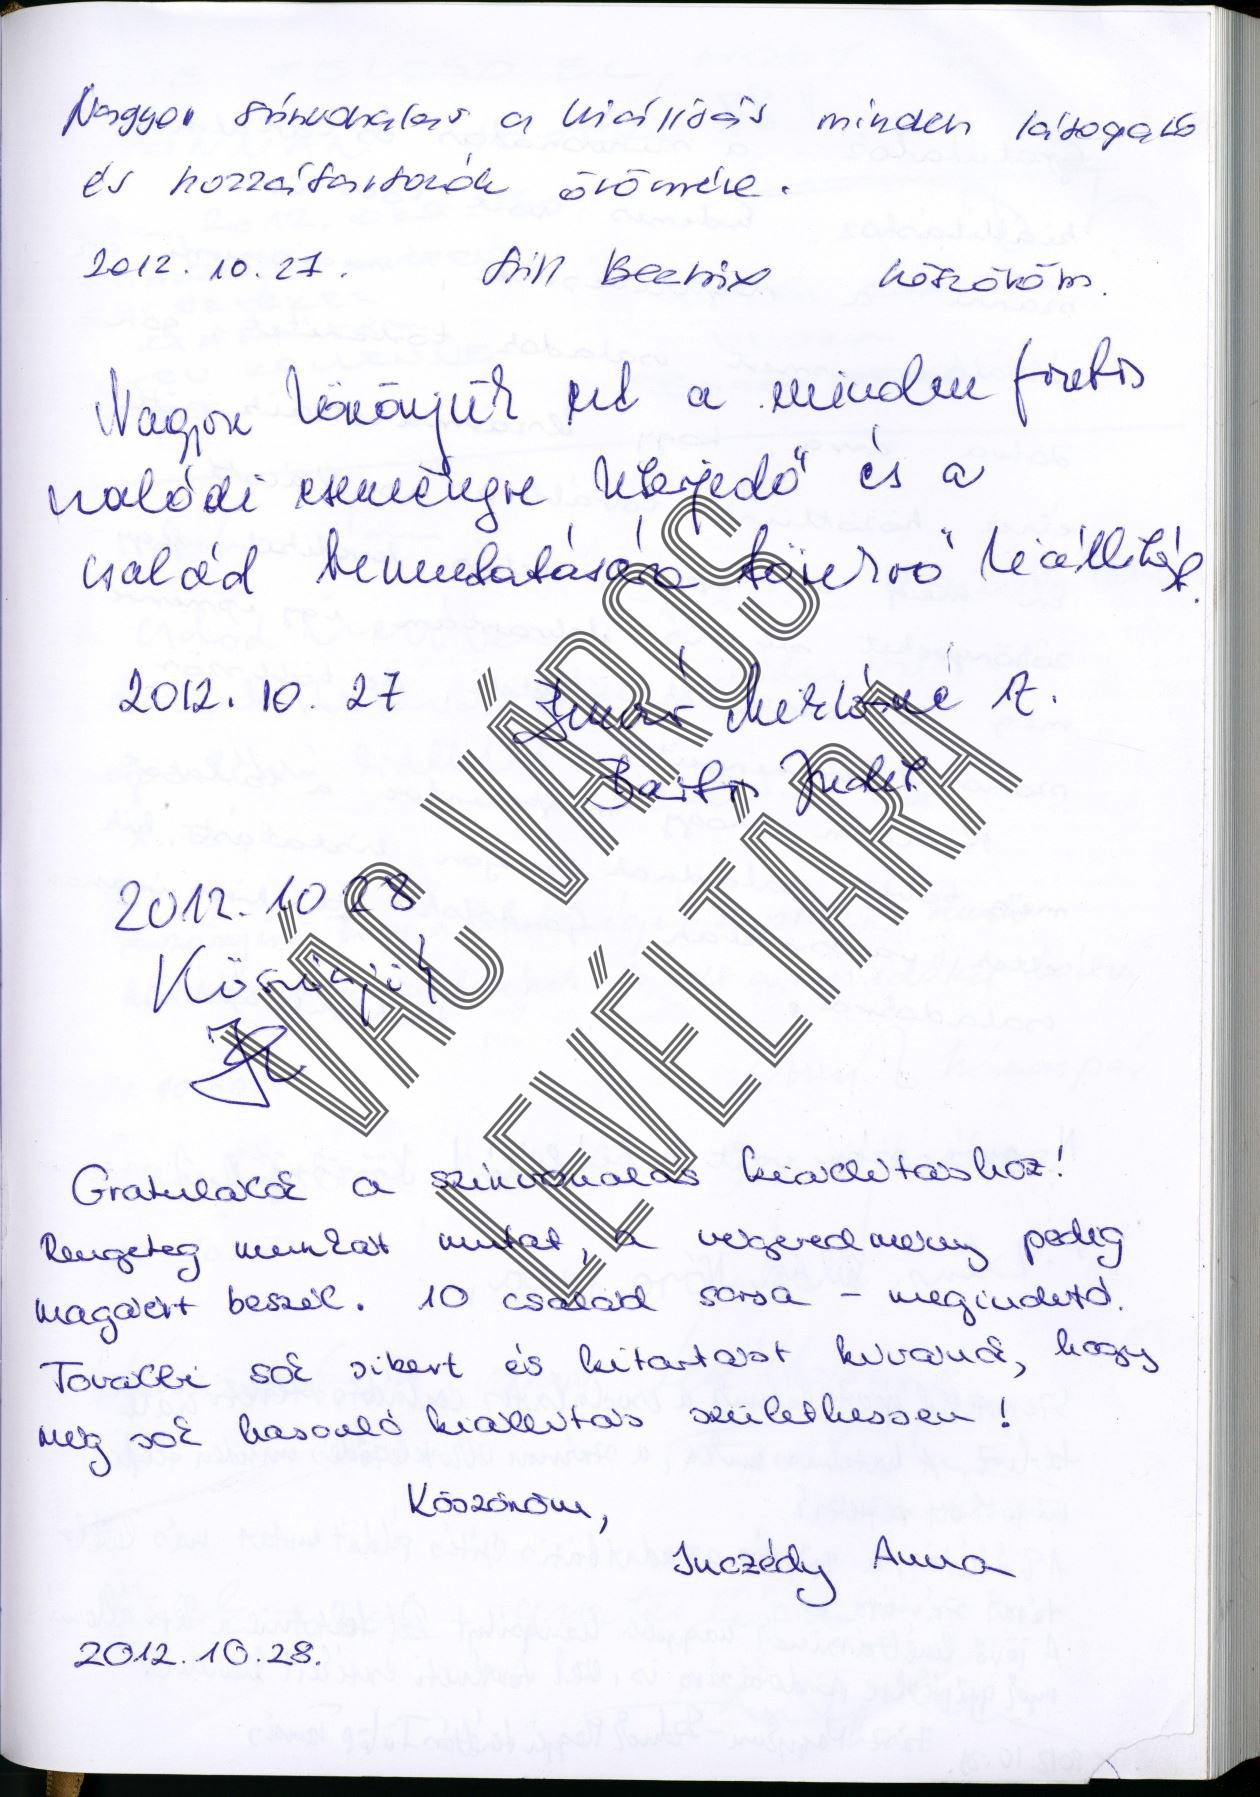 Nagyon színvonalas a kiállítás minden látogató
és hozzátartozók örömére.
2012.10.27. Beatrix köszönöm.
Nagyon köszönjük ezt a minden fontos
családi eseményre kiterjedő és a
család bemutatására törekvő kiállítást.
2012. 10. 27
Bartos Judit
2012. 10 28
Köszönjük
Gratulálok a színvonalas kiállításhoz!
Rengeteg munkát mutat, a végeredmény pedig
magáért beszél. 10 család sorsa - megindító.
További sok sikert és kitartást kívánok, hogy
még sok hasonló kiállítás születhessen!
Köszönöm,
Inczédy Anna
2012.10.28.
VÁC VÁROS
LEVÉLTÁRA